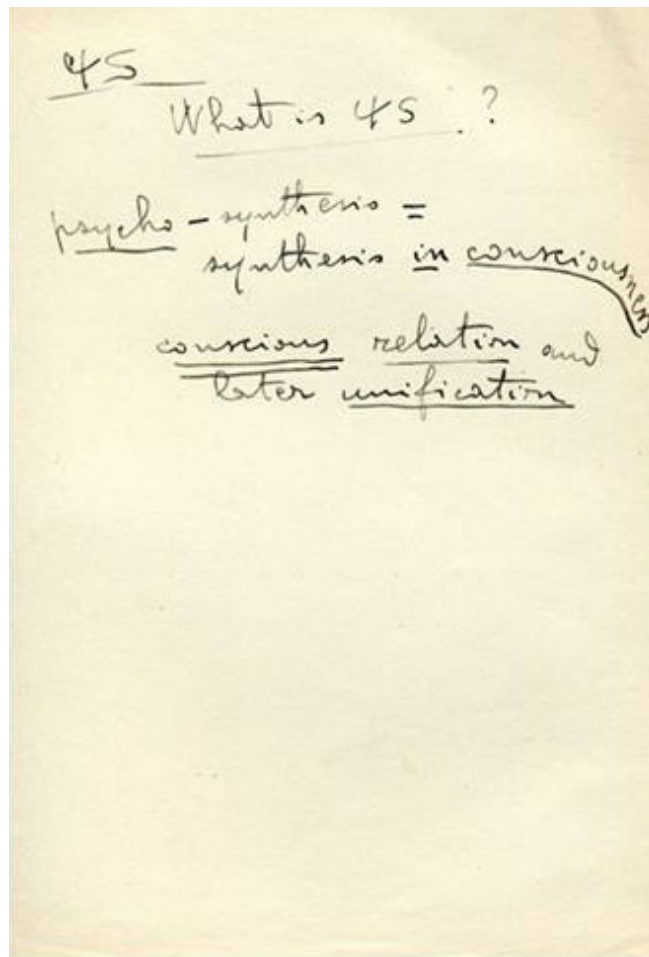 ΨS
What is ΨS ?
psycho - synthesis =
synthesis in consciousness
conscious relation and
later unification